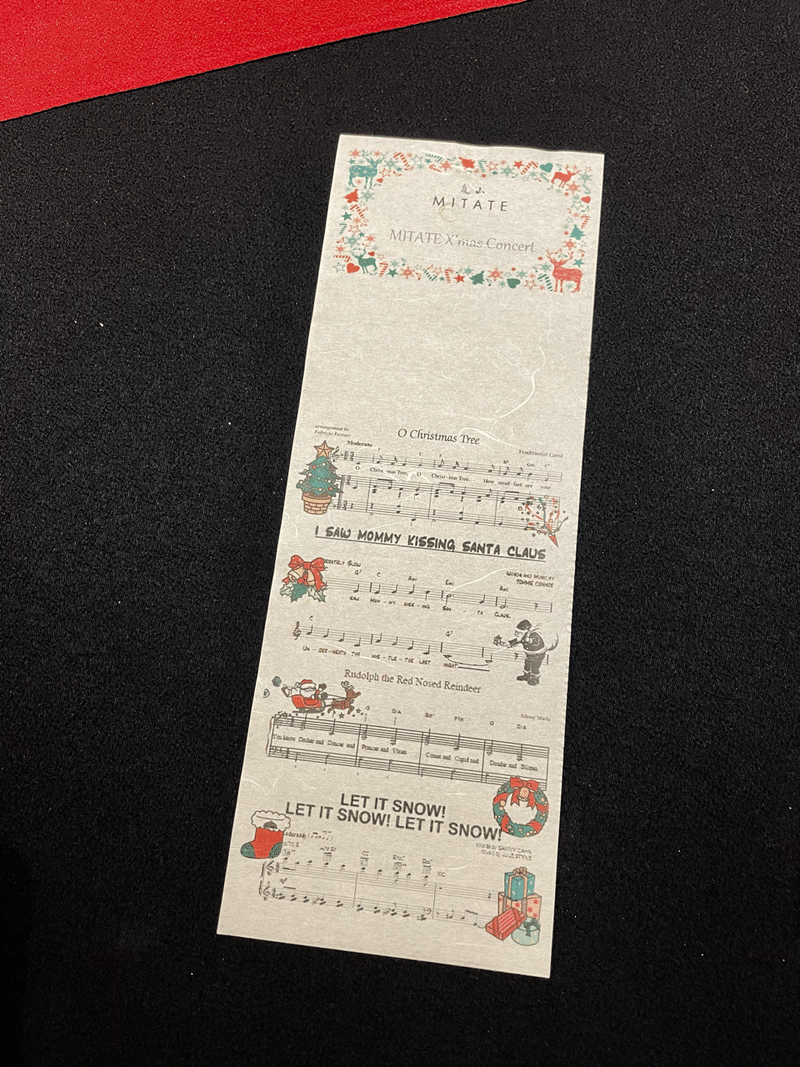 MITATE
MITATE X'mas Concert
O Christmas Tree
arrangement by
Fabrizio Ferrari
Traditional Carol
Moderato
O Christ - mas Tree, O Christ - mas Tree, How stead - fast are your
I SAW MOMMY KISSING SANTA CLAUS
WORDS AND MUSIC BY
TOMMIE CONNOR
SLOW
G7 C Am Em Am
SAW MOM - MY KISS - ING SAN - TA CLAUS,
C G7
UN - DER - NEATH THE MIS - TLE - TOE LAST NIGHT
Rudolph the Red Nosed Reindeer
Johnny Marks
G D/A Em F#m G D/A
You know Dasher and Dancer and Prancer and Vixen Comet and Cupid and Donder and Blitzen
LET IT SNOW!
LET IT SNOW! LET IT SNOW!
Words by SAMMY CAHN
Music by JULE STYNE
N.C.